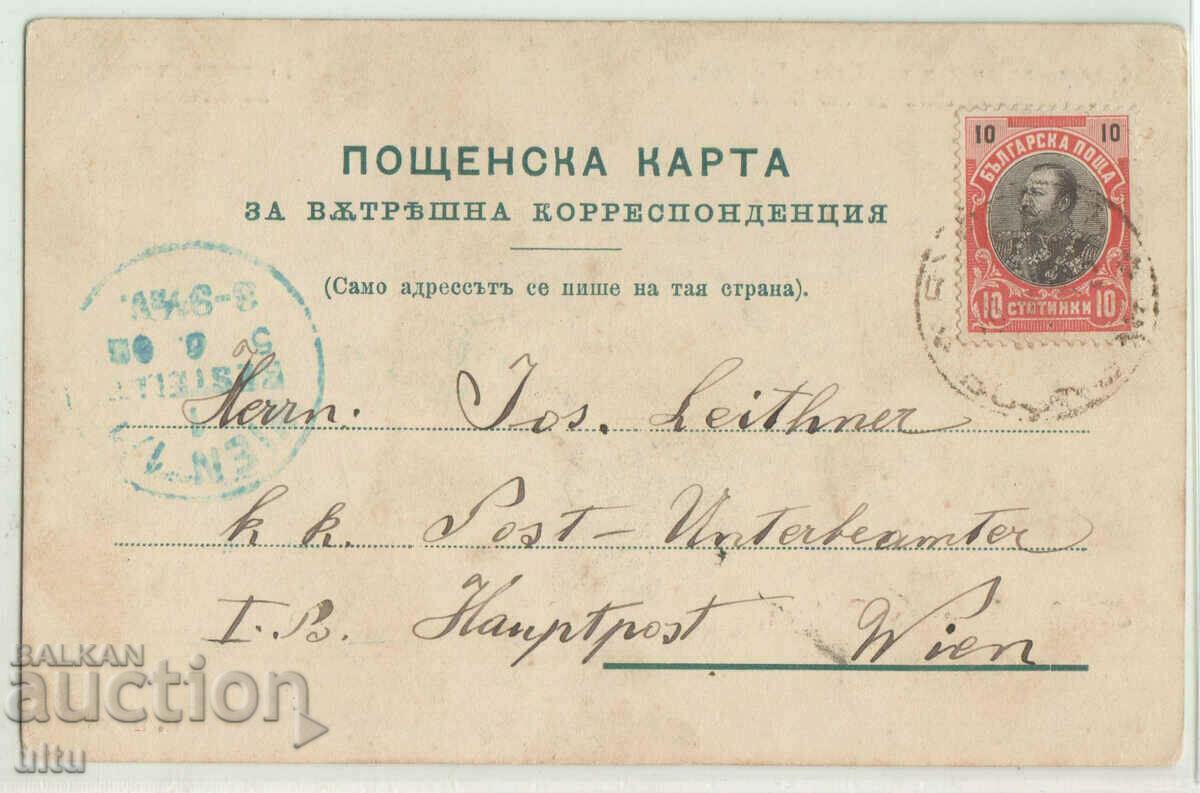 ПОЩЕНСКА КАРТА
ЗА ВѪТРѢШНА КОРРЕСПОНДЕНЦИЯ
(Само адрессътъ се пише на тая страна).
10 10
БЪЛГАРСКА ПОЩА
10 СТОТИНКИ 10
3-9½V.
5 6 03
BESTELLT
WIEN 1/1
Herrn: Jos. Leithner
k k. Post-Unterbeamter
I. B. Hauptpost Wien
BALKAN
auction
ultu